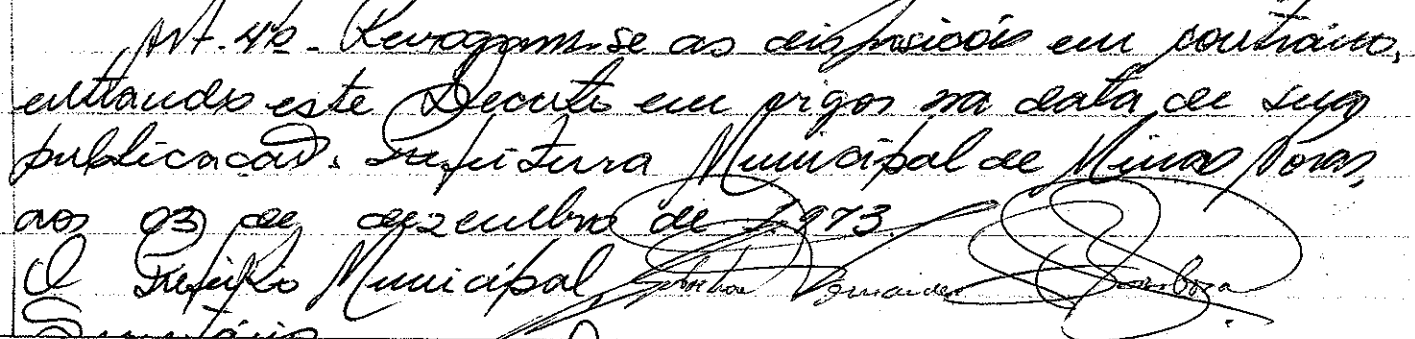 Art. 4º - Revogam-se as disposições em contrário,
entrando este Decreto em vigor na data de sua
publicação. Prefeitura Municipal de Minas Novas,
aos 03 de dezembro de 1.973
O Prefeito Municipal, Fernandes Barboza
Secretário